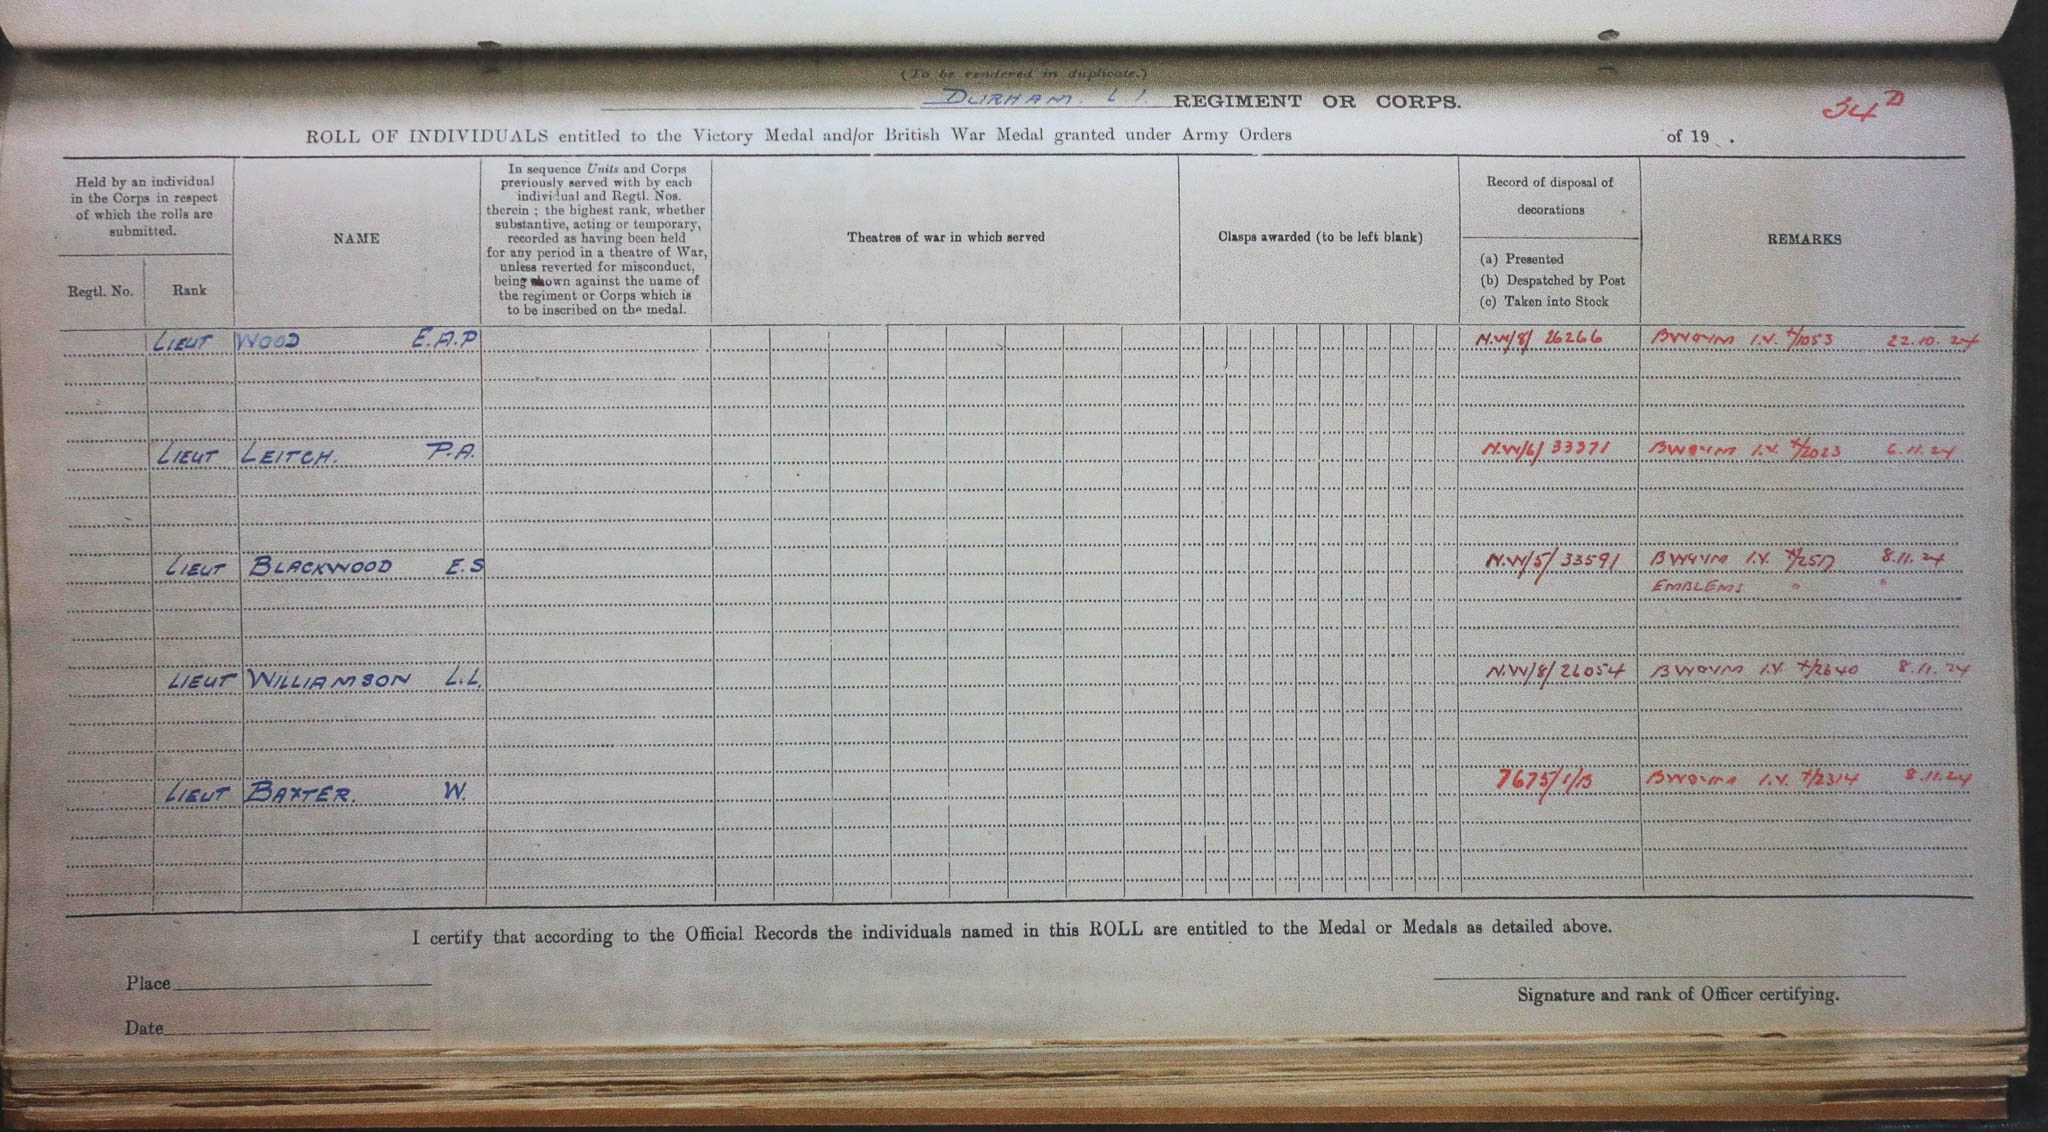 (To be rendered in duplicate.)
DURHAM. L.I. REGIMENT OR CORPS.
34 D
ROLL OF INDIVIDUALS entitled to the Victory Medal and/or British War Medal granted under Army Orders of 19 .
Held by an individual
in the Corps in respect
of which the rolls are
submitted.
Regtl. No.
Rank
NAME
In sequence Units and Corps
previously served with by each
individual and Regtl. Nos.
therein ; the highest rank, whether
substantive, acting or temporary,
recorded as having been held
for any period in a theatre of War,
unless reverted for misconduct,
being shown against the name of
the regiment or Corps which is
to be inscribed on the medal.
Theatres of war in which served
Clasps awarded (to be left blank)
Record of disposal of
decorations
(a) Presented
(b) Despatched by Post
(c) Taken into Stock
REMARKS
LIEUT WOOD E.A.P N.W/8/ 26266 BW&VM I.V. 22.10.24
LIEUT LEITCH. P.A. N.W/6/ 33371 BW&VM I.V. 6.11.24
LIEUT BLACKWOOD E.S N.W/5/ 33591 BW&VM I.V. 8.11.24
EMBLEMS " "
LIEUT WILLIAMSON L.L. N.W/8/ 26054 BW&VM I.V. 8.11.24
LIEUT BAXTER. W. 7675/1/B BW&VM I.V. 8.11.24
I certify that according to the Official Records the individuals named in this ROLL are entitled to the Medal or Medals as detailed above.
Place
Date
Signature and rank of Officer certifying.